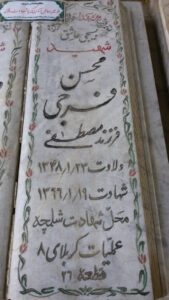 شهید
محسن
فرجی
فرزند مصطفی
ولادت ۱۳۴۸/۱/۲۳
شهادت ۱۳۶۶/۱/۱۹
محل شهادت شلمچه
عملیات کربلای ۸
قطعه ۲۶